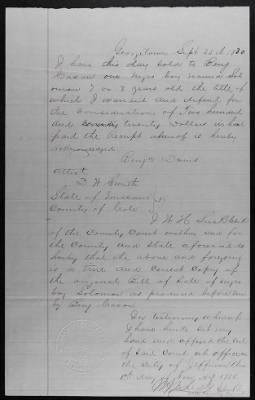 Georgetown Sept 22d 1830
I have this day sold to Benj
Hanson one Negro boy named Sol
omon 7 or 8 years old the title of
which I warrant and defend for
the consideration of Two hundred
and seventy Dollars in had
paid the receipt whereof is hereby
acknowledged.
Benja Davis
Attest
S. H. Smith
State of Missouri
County of Cole
I W H Lusk Clerk
of the County Court within and for
the County and State aforesaid do
certify that the above and foregoing
is a true and correct Copy of
the original Bill of Sale of negro
boy Solomon as produced before me
by Benj
In testimony whereof
I have hereto set my
hand and affixed the seal
of said Court at office in
the City of Jefferson this
day of